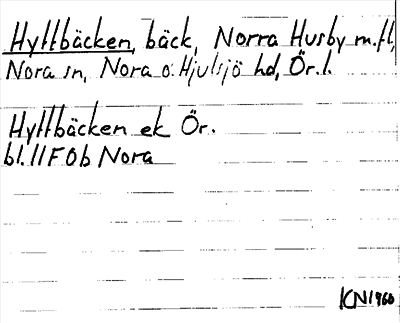 Hyttbäcken, bäck, Norra Husby m.fl,
Nora sn, Nora o Hjulsjö hd, Ör.l.
Hyttbäcken ek Ör.
bl. 11F0b Nora
KN1960